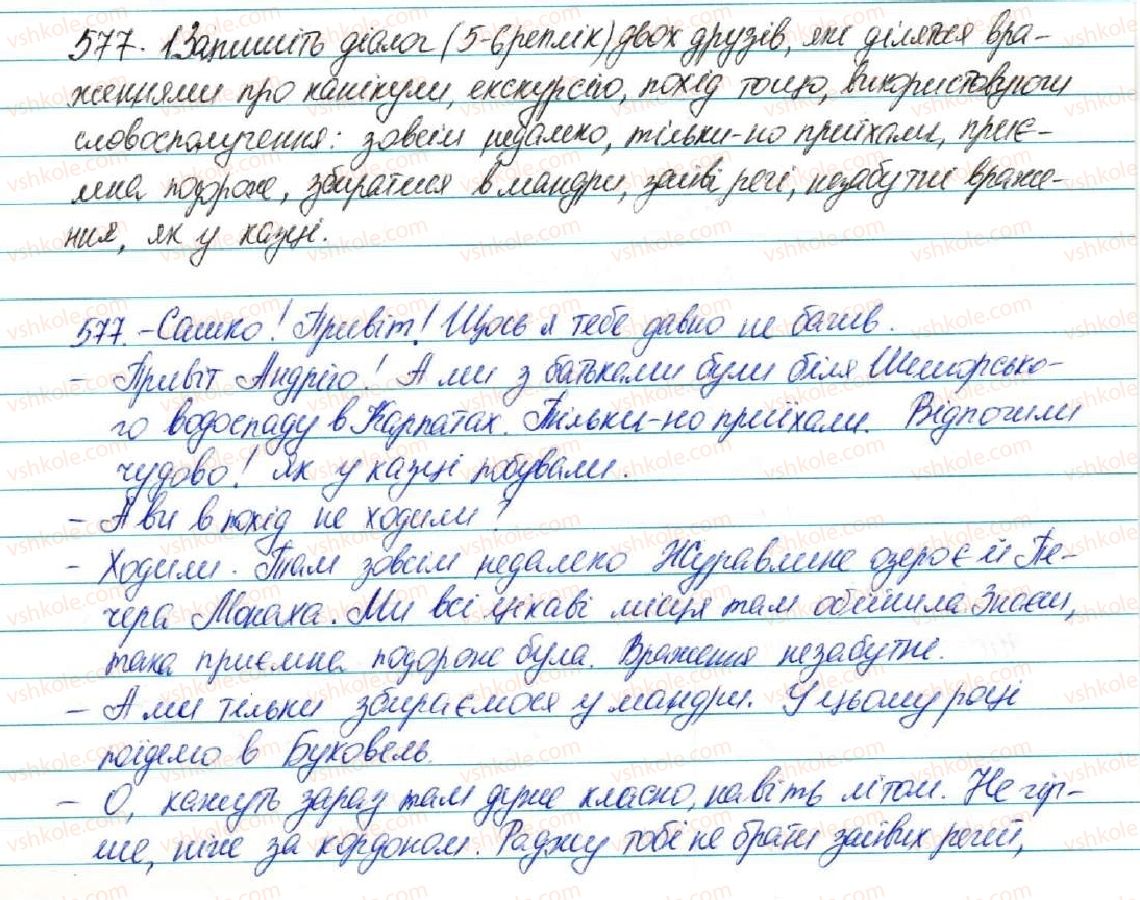 577. 1 Запишіть діалог (5-6 реплік) двох друзів, які діляться вра-
женнями про канікули, екскурсію, похід тощо, використовуючи
словосполучення: зовсім недалеко, тільки-но приїхали, приє-
мна подорож, збиратися в мандри, зайві речі, незабутні вражен-
ня, як у казці.
577. - Сашко! Привіт! Щось я тебе давно не бачив.
- Привіт Андрію! А ми з батьками були біля Шипотсько-
го водоспаду в Карпатах. Тільки-но приїхали. Відпочили
чудово! Як у казці побували.
- А ви в похід не ходили?
- Ходили. Там зовсім недалеко Журавлине озеро є й Пе-
чера Монаха. Ми всі цікаві місця там обійшли. Знаєш,
така приємна подорож була. Враження незабутнє.
- А ми тільки збираємося у мандри. У цьому році
поїдемо в Буковель.
- О, кажуть зараз там дуже класно, навіть літом. Не гір-
ше, ніж за кордоном. Раджу тобі не брати зайвих речей,